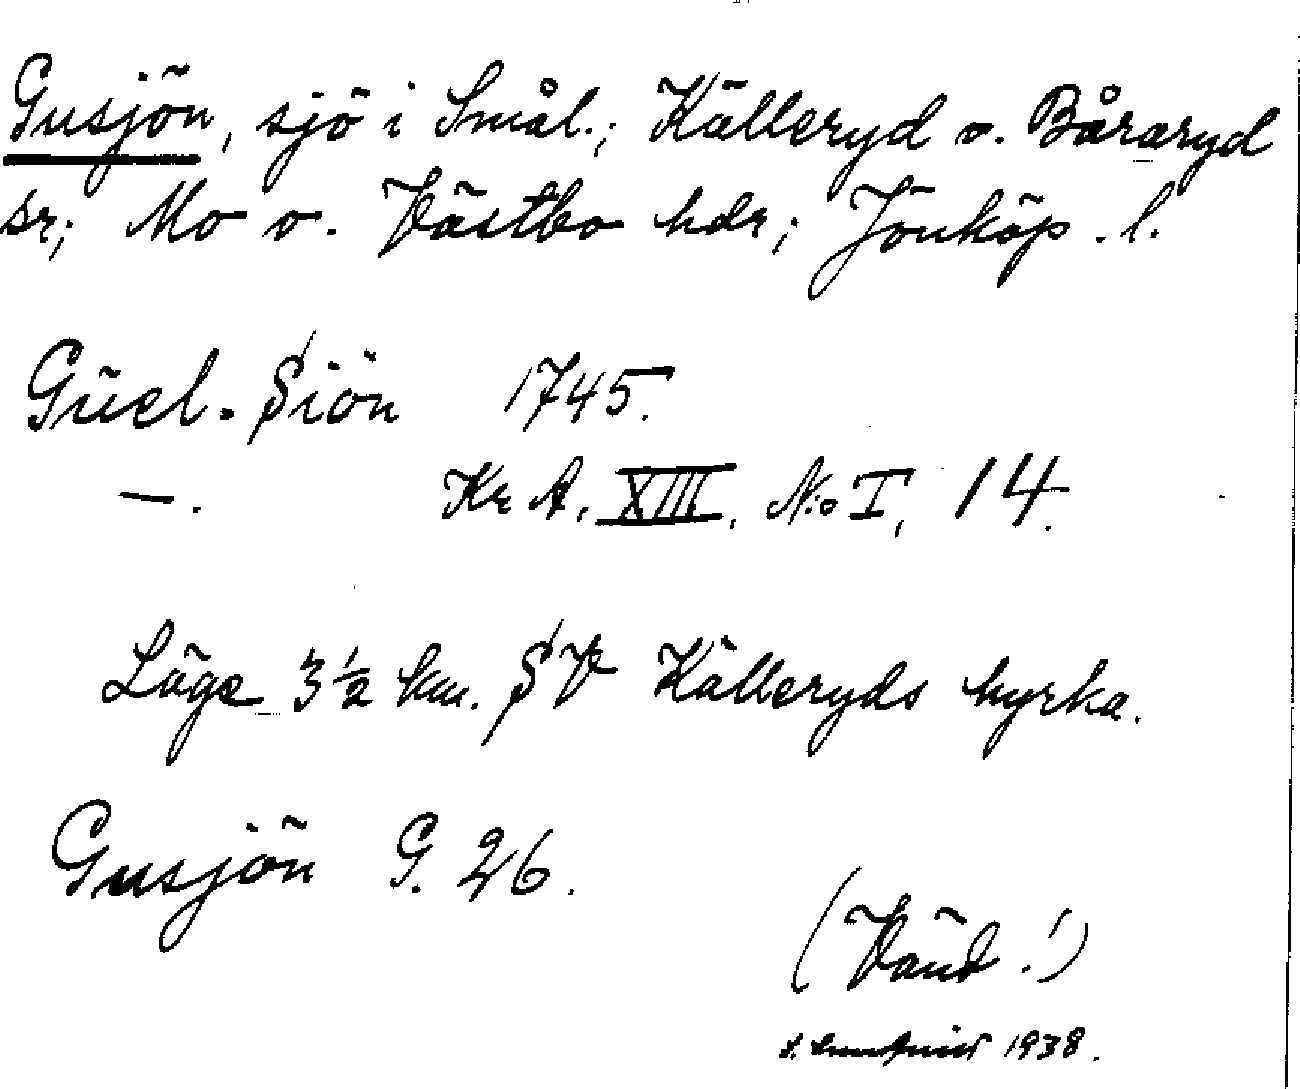 Gusjön, sjö i Smål.; Källeryd o. Båraryd
sr; Mo o. Västbo hdr; Jönköp. l.
Güel. Siön 1745.
—. Kr A. XIII. No I, 14.
Läge 3½ km. SV Källeryds kyrka.
Gusjön G. 26.
(Vänd!)
1938.